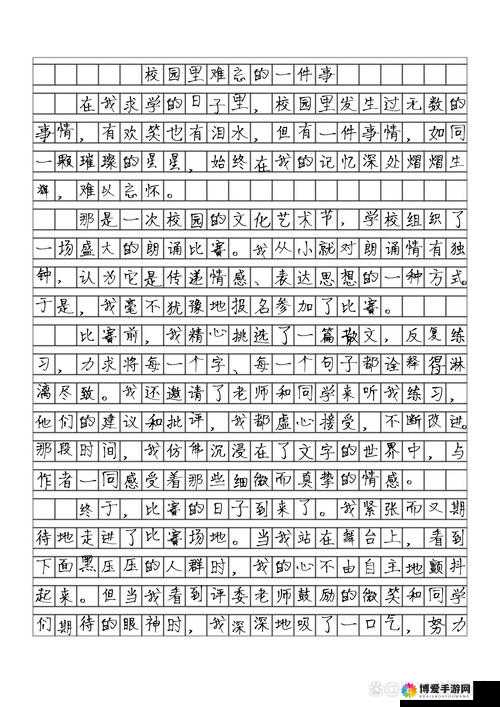 校园里难忘的一件事
在我求学的日子里，校园里发生过无数的
事情，有欢笑也有泪水，但有一件事情，如同
一颗璀璨的星星，始终在我的记忆深处熠熠生
辉，难以忘怀。
那是一次校园的文化艺术节，学校组织了
一场盛大的朗诵比赛。我从小就对朗诵情有独
钟，认为它是传递情感、表达思想的一种方式。
于是，我毫不犹豫地报名参加了比赛。
比赛前，我精心挑选了一篇散文，反复练
习，力求将每一个字、每一个句子都诠释得淋
漓尽致。我还邀请了老师和同学来听我练习，
他们的建议和批评，我都虚心接受，不断改进。
那段时间，我仿佛沉浸在了文字的世界中，与
作者一同感受着那些细微而真挚的情感。
终于，比赛的日子到来了。我紧张而又期
待地走进了比赛场地。当我站在舞台上，看到
下面黑压压的人群时，我的心不由自主地颤抖
起来。但当我看到评委老师鼓励的微笑和同学
们期待的眼神时，我深深地吸了一口气，努力
博爱手游网